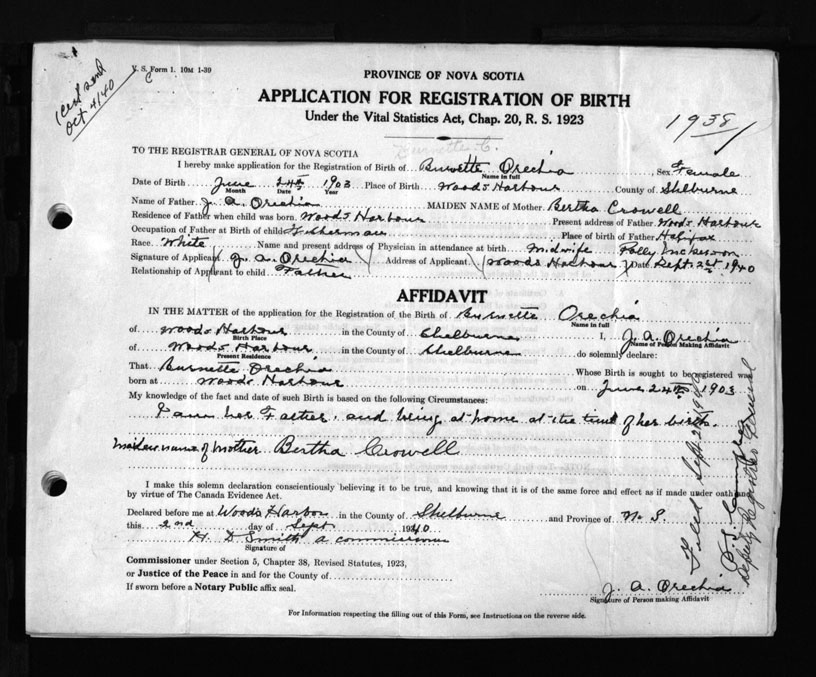 V. S. Form 1. 10M 1-39
Cert send
Oct 4/40
PROVINCE OF NOVA SCOTIA
APPLICATION FOR REGISTRATION OF BIRTH
Under the Vital Statistics Act, Chap. 20, R. S. 1923
1938
Burnette C.
TO THE REGISTRAR GENERAL OF NOVA SCOTIA
I hereby make application for the Registration of Birth of Burnette Orechia Sex Female
Name in full
Date of Birth June 24th 1903 Place of Birth Woods Harbour County of Shelburne
Month Date Year
Name of Father J. A. Orechia MAIDEN NAME of Mother Bertha Crowell
Residence of Father when child was born Woods Harbour Present address of Father Woods Harbour
Occupation of Father at Birth of child Fisherman Place of birth of Father Halifax
Race White Name and present address of Physician in attendance at birth midwife Polly Nickerson
Signature of Applicant J. A. Orechia Address of Applicant Woods Harbour Date Sept. 2nd 1940
Relationship of Applicant to child Father
AFFIDAVIT
IN THE MATTER of the application for the Registration of the Birth of Burnette Orechia
Name in full
of Woods Harbour in the County of Shelburne I, J. A. Orechia
Birth Place Name of Person Making Affidavit
of Woods Harbour in the County of Shelburne do solemnly declare:
Present Residence
That Burnette Orechia Whose Birth is sought to be registered was
born at Woods Harbour on June 24th 1903
My knowledge of the fact and date of such Birth is based on the following Circumstances:
I am her Father, and being at home at the time of her birth.
Maiden name of mother Bertha Crowell
I make this solemn declaration conscientiously believing it to be true, and knowing that it is of the same force and effect as if made under oath and
by virtue of The Canada Evidence Act.
Declared before me at Woods Harbor in the County of Shelburne and Province of N. S.
this 2nd day of Sept 1940
H. D Smith a commissioner
Signature of
Commissioner under Section 5, Chapter 38, Revised Statutes, 1923,
or Justice of the Peace in and for the County of
If sworn before a Notary Public affix seal.
J. A. Orechia
Signature of Person making Affidavit
For Information respecting the filling out of this Form, see Instructions on the reverse side.
Filed Sept 1940
Deputy Registrar General